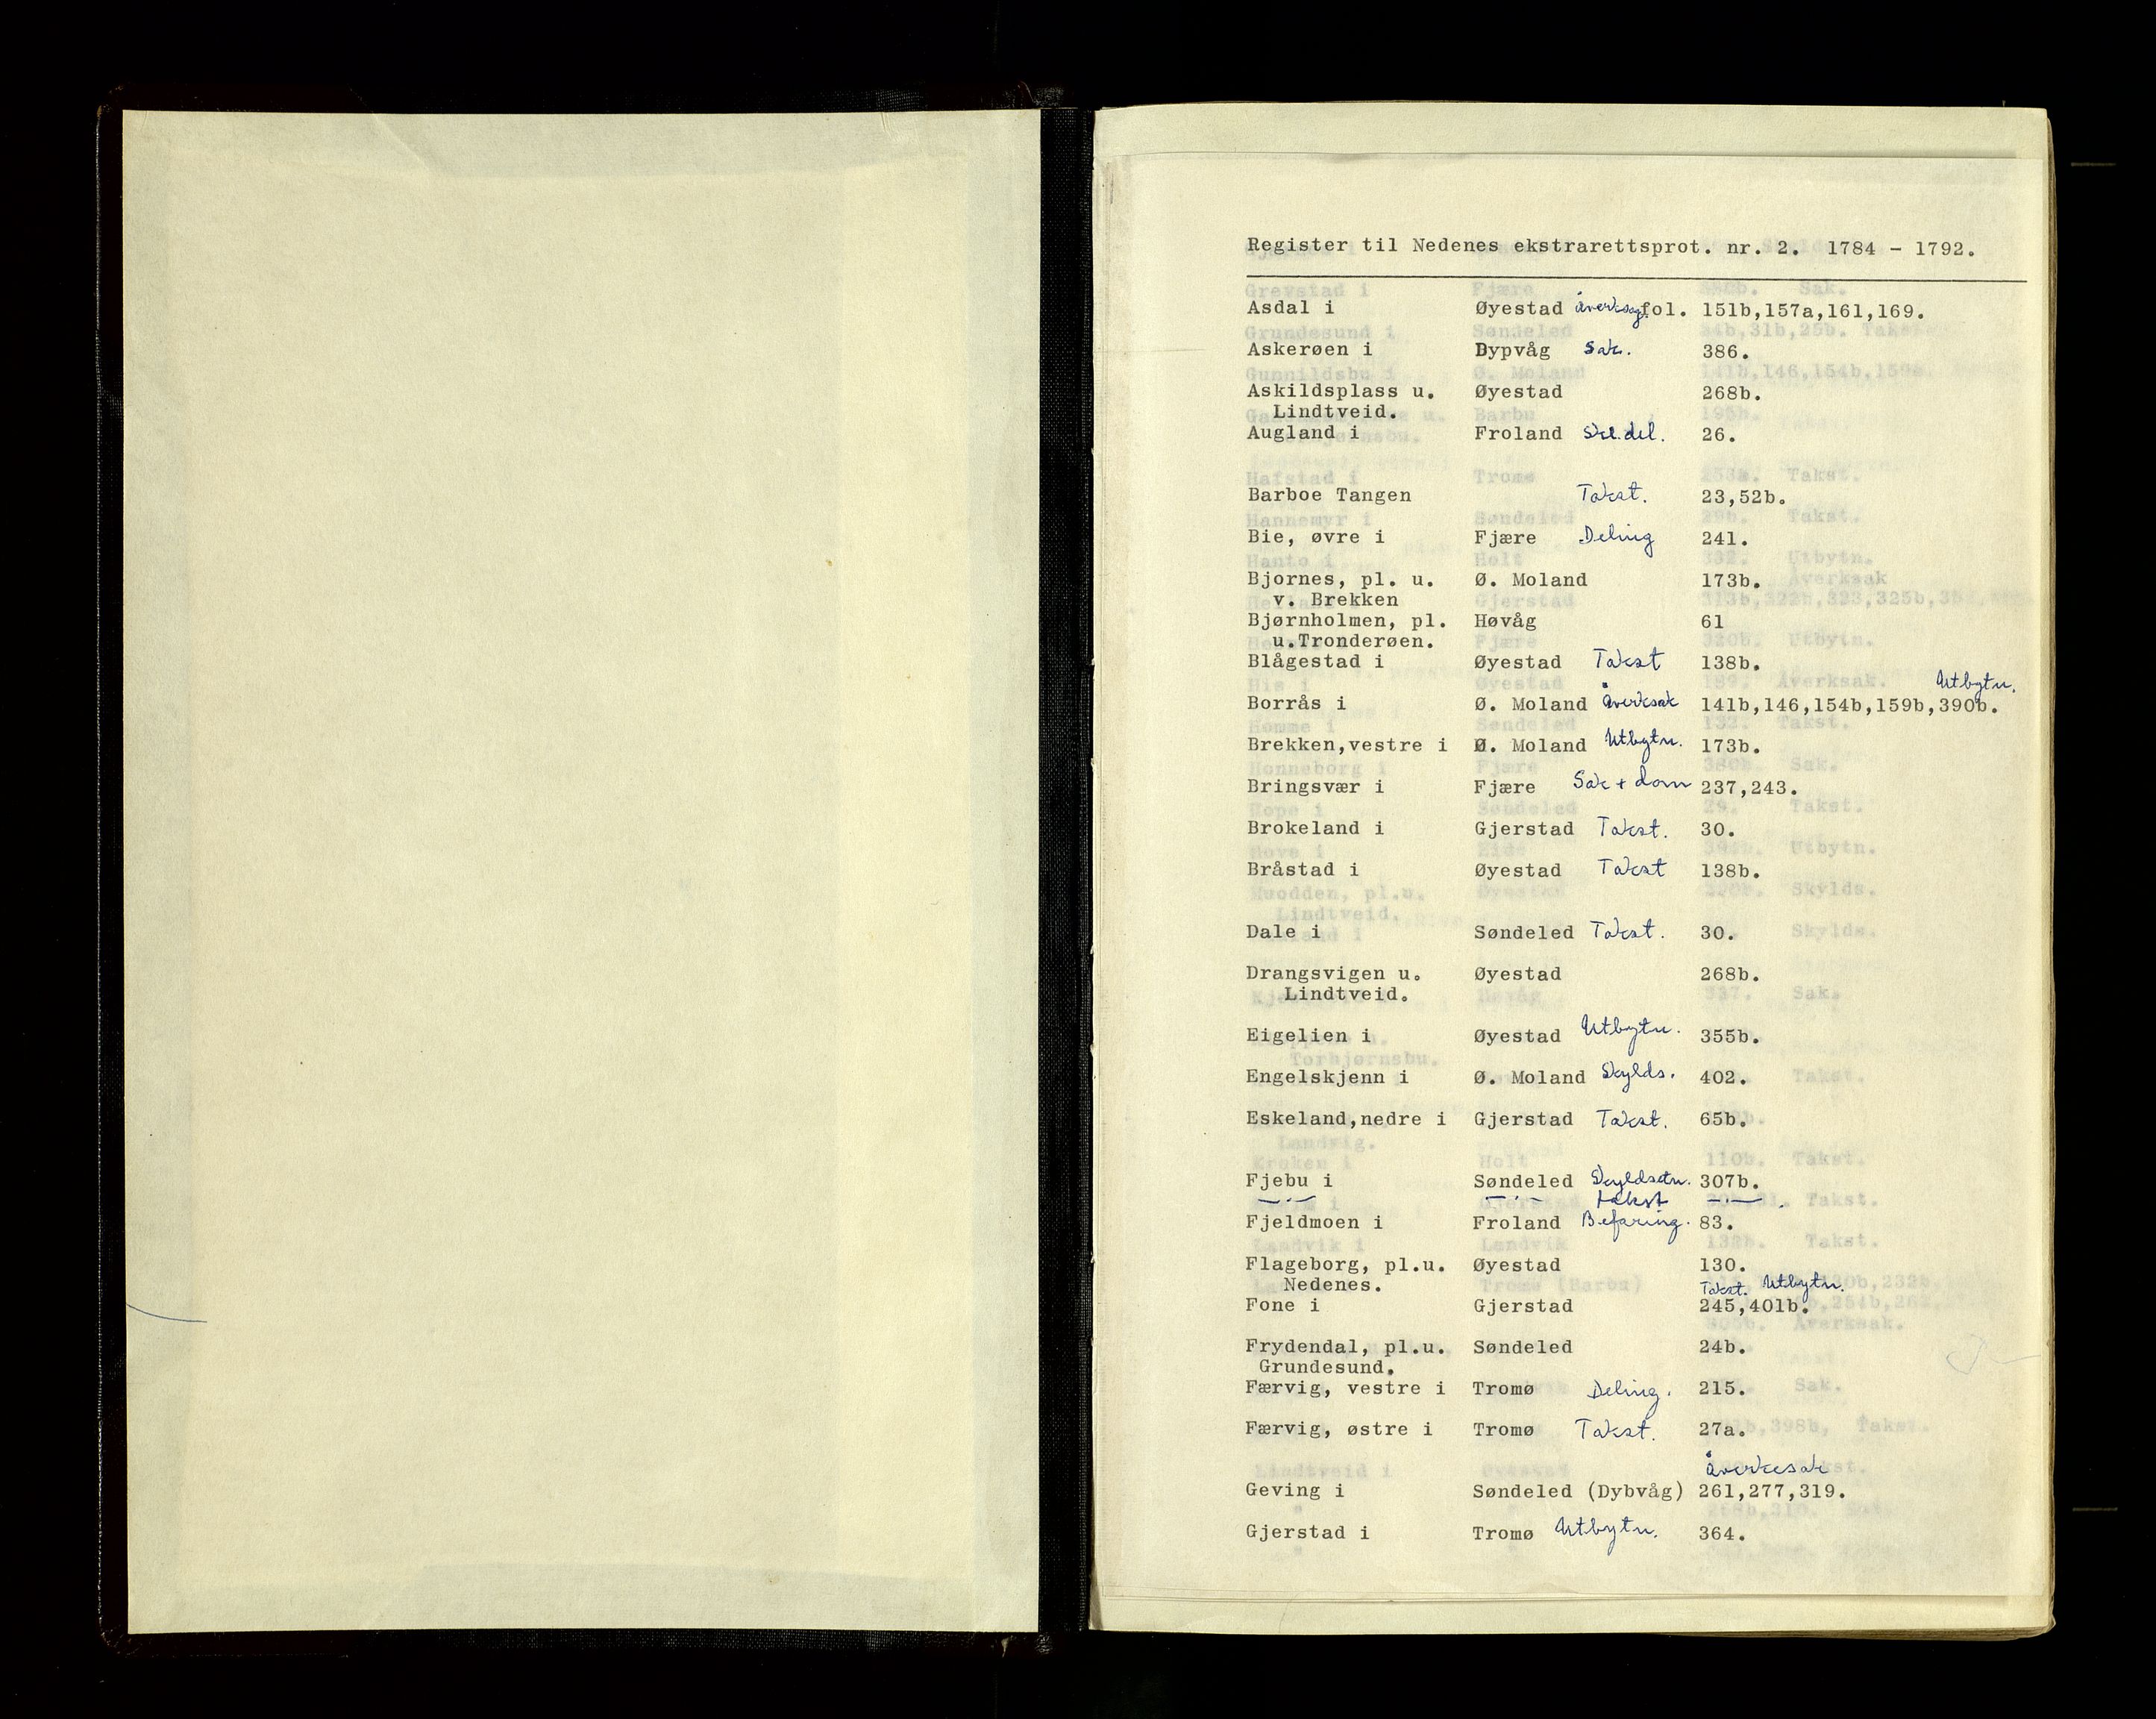 Register til Nedenes ekstrarettsprot. nr. 2. 1784 - 1792.
Asdal i Øyestad Åverksag fol. 151b,157a,161,169.
Askerøen i Dypvåg Sak. 386.
Askildsplass u. Øyestad 268b.
Lindtveid.
Augland i Froland Skl.del. 26.
Barboe Tangen Takst. 23,52b.
Bie, øvre i Fjære Deling 241.
Bjornes, pl. u. Ø. Moland 173b.
v. Brekken
Bjørnholmen, pl. Høvåg 61
u.Tronderøen.
Blågestad i Øyestad Takst 138b.
Utbytn.
Borrås i Ø. Moland Åverksak 141b,146,154b,159b,390b.
Brekken,vestre i Ø. Moland Utbytn. 173b.
Bringsvær i Fjære Sak + dom 237,243.
Brokeland i Gjerstad Takst. 30.
Bråstad i Øyestad Takst 138b.
Dale i Søndeled Takst. 30.
Drangsvigen u. Øyestad 268b.
Lindtveid.
Eigelien i Øyestad Utbytn. 355b.
Engelskjenn i Ø. Moland Skylds. 402.
Eskeland,nedre i Gjerstad Takst. 65b.
Fjebu i Søndeled Skyldsetn. 307b.
—"— —"— takst —"—
Fjeldmoen i Froland Befaring. 83.
Flageborg, pl.u. Øyestad 130.
Nedenes.
Takst. Utbytn.
Fone i Gjerstad 245,401b.
Frydendal, pl.u. Søndeled 24b.
Grundesund.
Færvig, vestre i Tromø Deling. 215.
Færvig, østre i Tromø Takst. 27a.
Åverksak
Geving i Søndeled (Dybvåg) 261,277,319.
Gjerstad i Tromø Utbytn. 364.